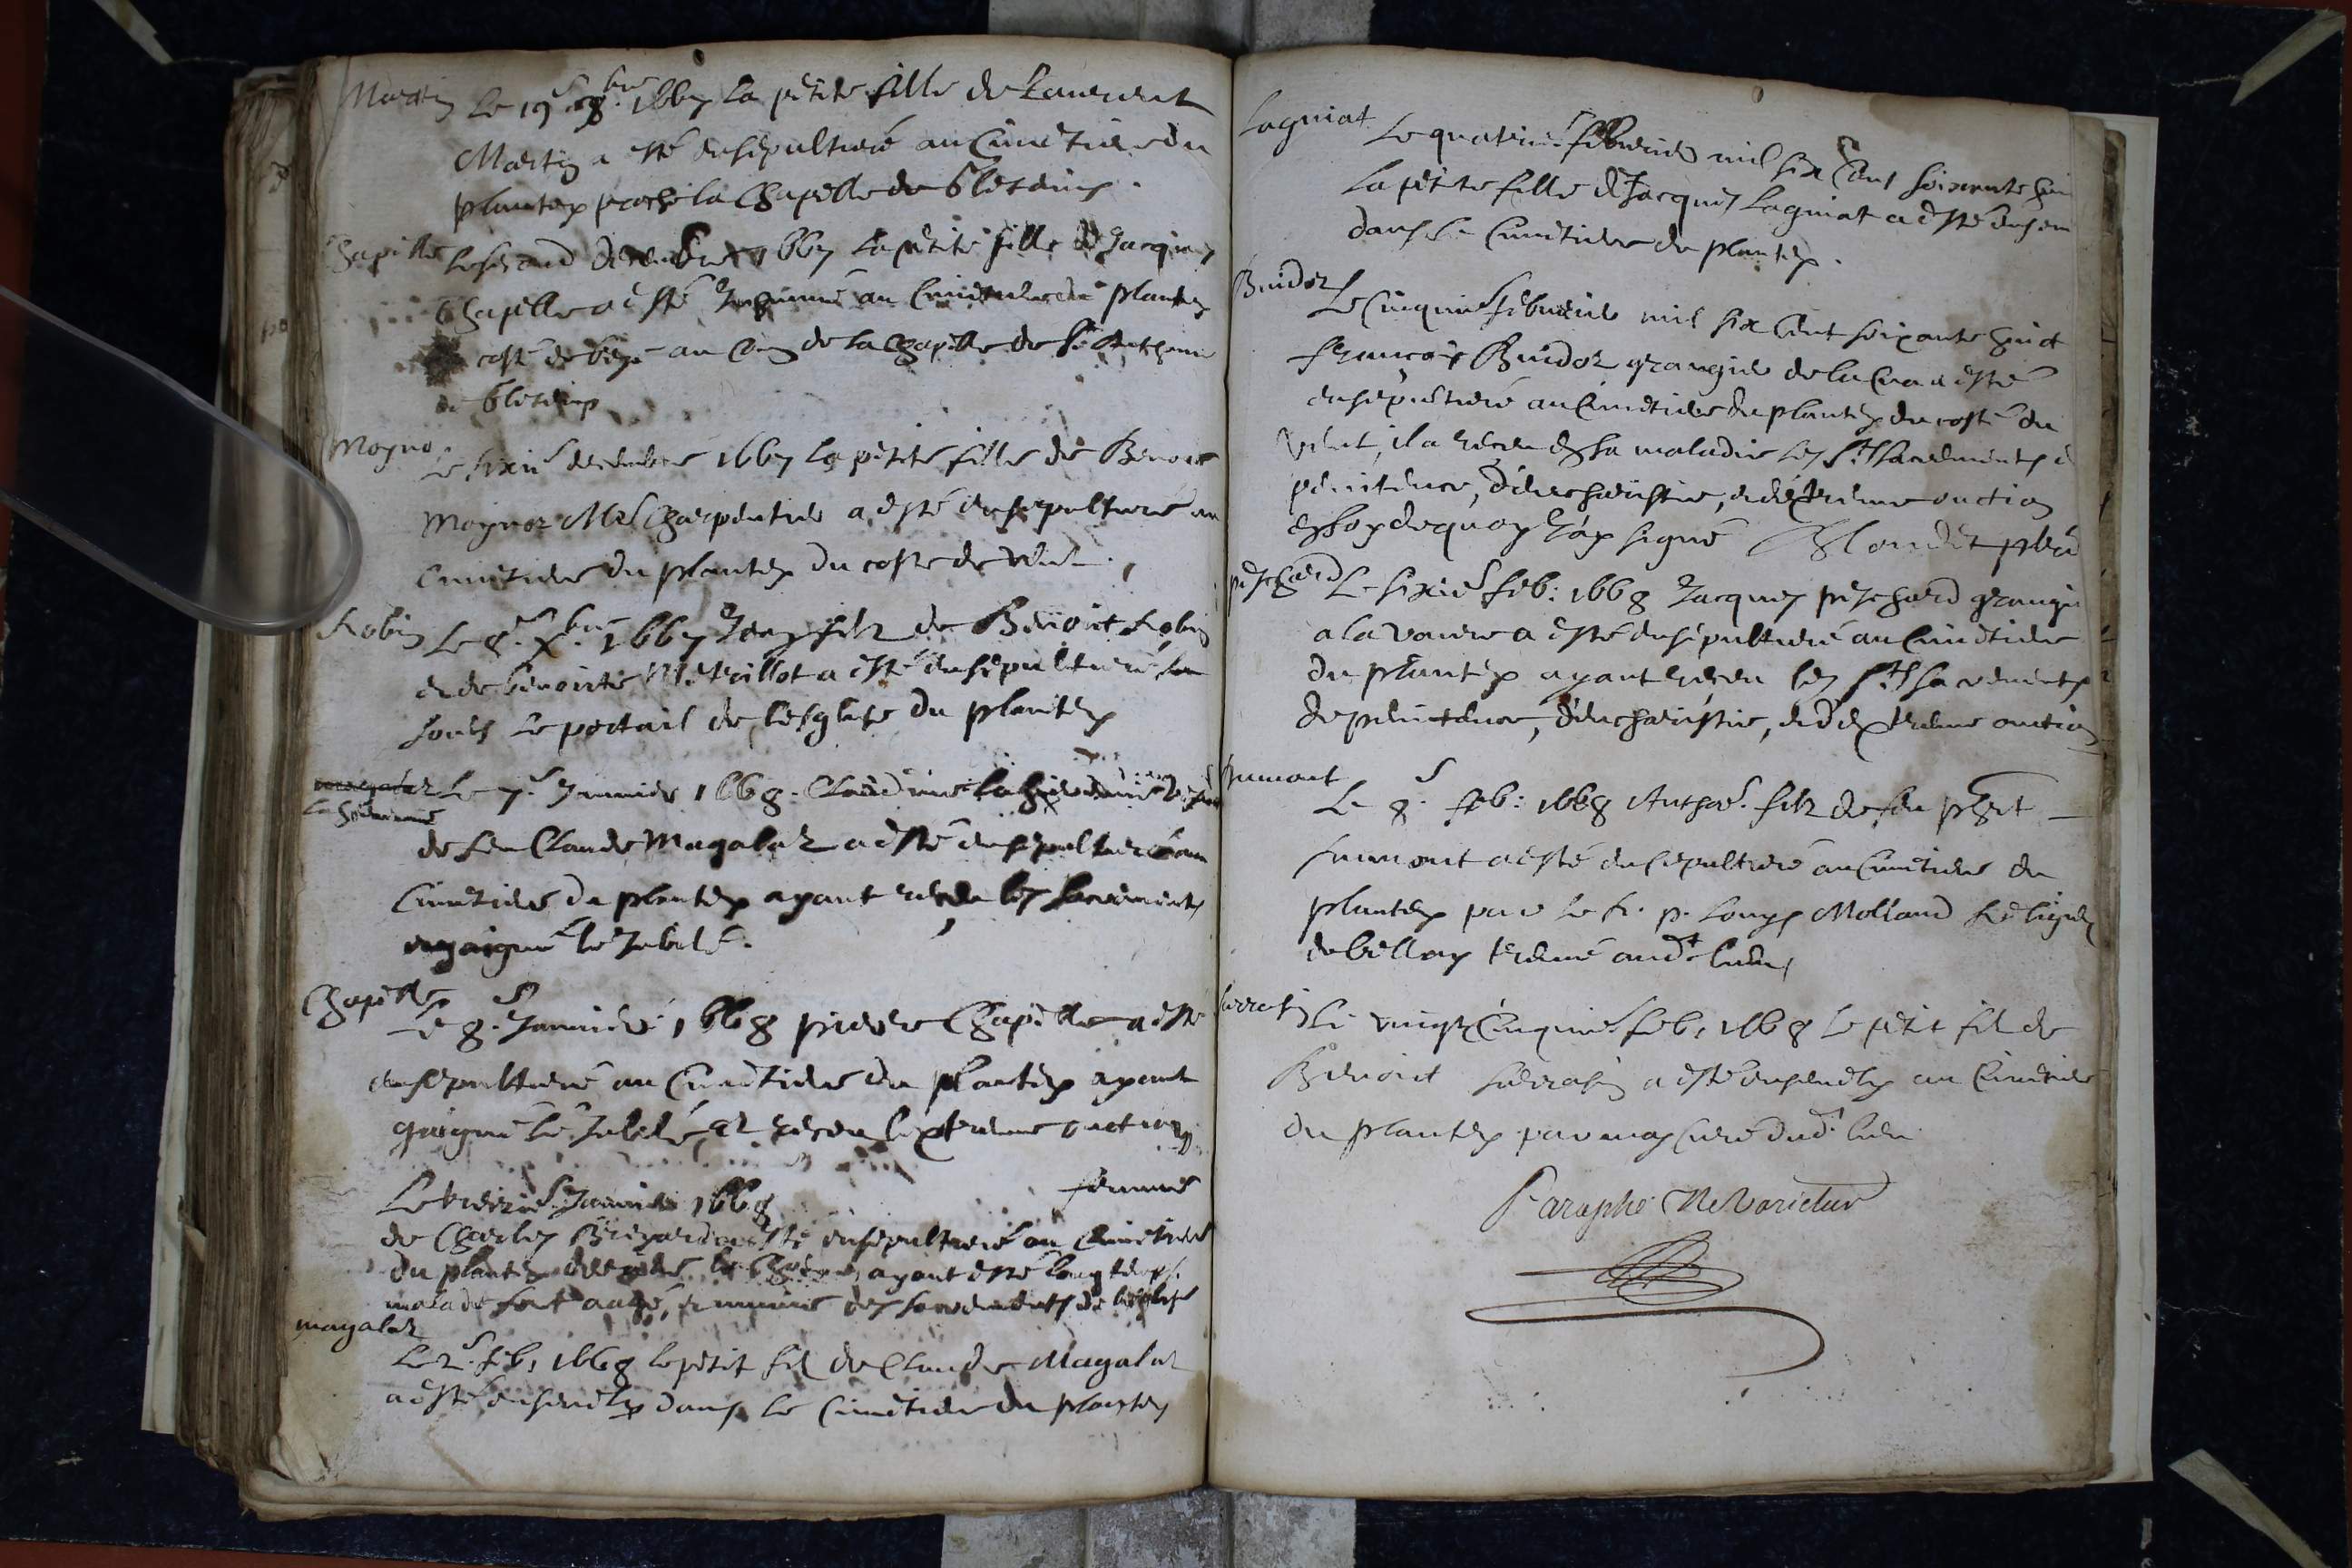 Martin
Le 19e 9bre 1667 la petite fille de Laurent
Martin a esté ensepulturé au Cimetiere du
plantey proche la Chapelle de Gletains.
Chapelle
Le second decembre 1667 la petite fille de Jacques
Chapelle a esté Inhumé au Cimetiere du plantey
costé de bize au coin de la Chapelle de St Anthoine
de Gleteins
Moyno
Le sixie decembre 1667 la petite fille de Benoit
Moynoz Me Charpentier a esté ensepulturé au
Cimetiere du plantey du costé de vent.
Robin
Le 8e Xbre 1667 Jean filz de Benoist Robin
et de benoite a esté ensepulturé
soubs le portail de lesglise du plantey
Magalaz
Le 7e Janvier 1668. Claudine
de feu Claude Magalaz a esté ensepulturé au
Cimetiere du plantey ayant receu les sacrements
et gaigné le Jubilé.
Chapelle
Le 8e Janvier 1668 pierre Chapelle a esté
ensepulturé au Cimetiere du plantey ayant
gaigné le Jubilé, et receu l'extreme onction
Le treizie Janvier 1668 femme
de Charles a esté ensepulturé au Cimetiere
du plantey ayant esté longtemps
malade fort aagé, et munie des sacrements de l'esglise
magalaz
Le 2e feb. 1668 le petit fils de Claude Magalaz
a esté ensevely dans le Cimetiere du plantey
Lagniat
Le quatrie febvrier mil six cent soixante huit
la petite fille de Jacques Lagniat a esté
dans le Cimetiere du plantey.
Buidoz
Le Cinquie febvrier mil six cent soixante huict
françois Buidoz grangier de la a esté
ensepulturé au Cimetiere du plantey du costé du
vent, il a receu en sa maladie les Sts Sacrements de
penitence, d'eucharistie, et d'extreme onction
en foy dequoy J'ay signé
Le sixie feb: 1668 Jacques grangier
a la a esté ensepulturé au Cimetiere
du plantey ayant receu les Sts sacrements
de penitence, d'eucharistie, et d'extreme onction
Jumont
Le 8e feb: 1668 Anthoe filz de feu phlt
Jumont a esté ensepulturé au Cimetiere du
plantey par le R. p. Louys Molland Religieux
lieu
Sarrasin
Le vingt cinquie feb. 1668 le petit fils de
Benoist Sarrasin a esté ensevely au Cimetiere
du plantey par moy Curé dud. lieu
Paraphé Ne Varietur